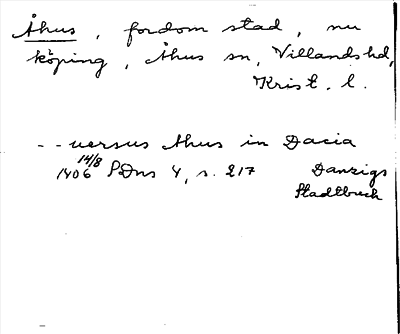 Åhus, fordom stad, nu
köping, Åhus sn, Villands hd,
Krist. l.
-- versus Ahus in Dacia
14/8
1406 SDns 4, s. 217 Danzigs
Stadtbuch